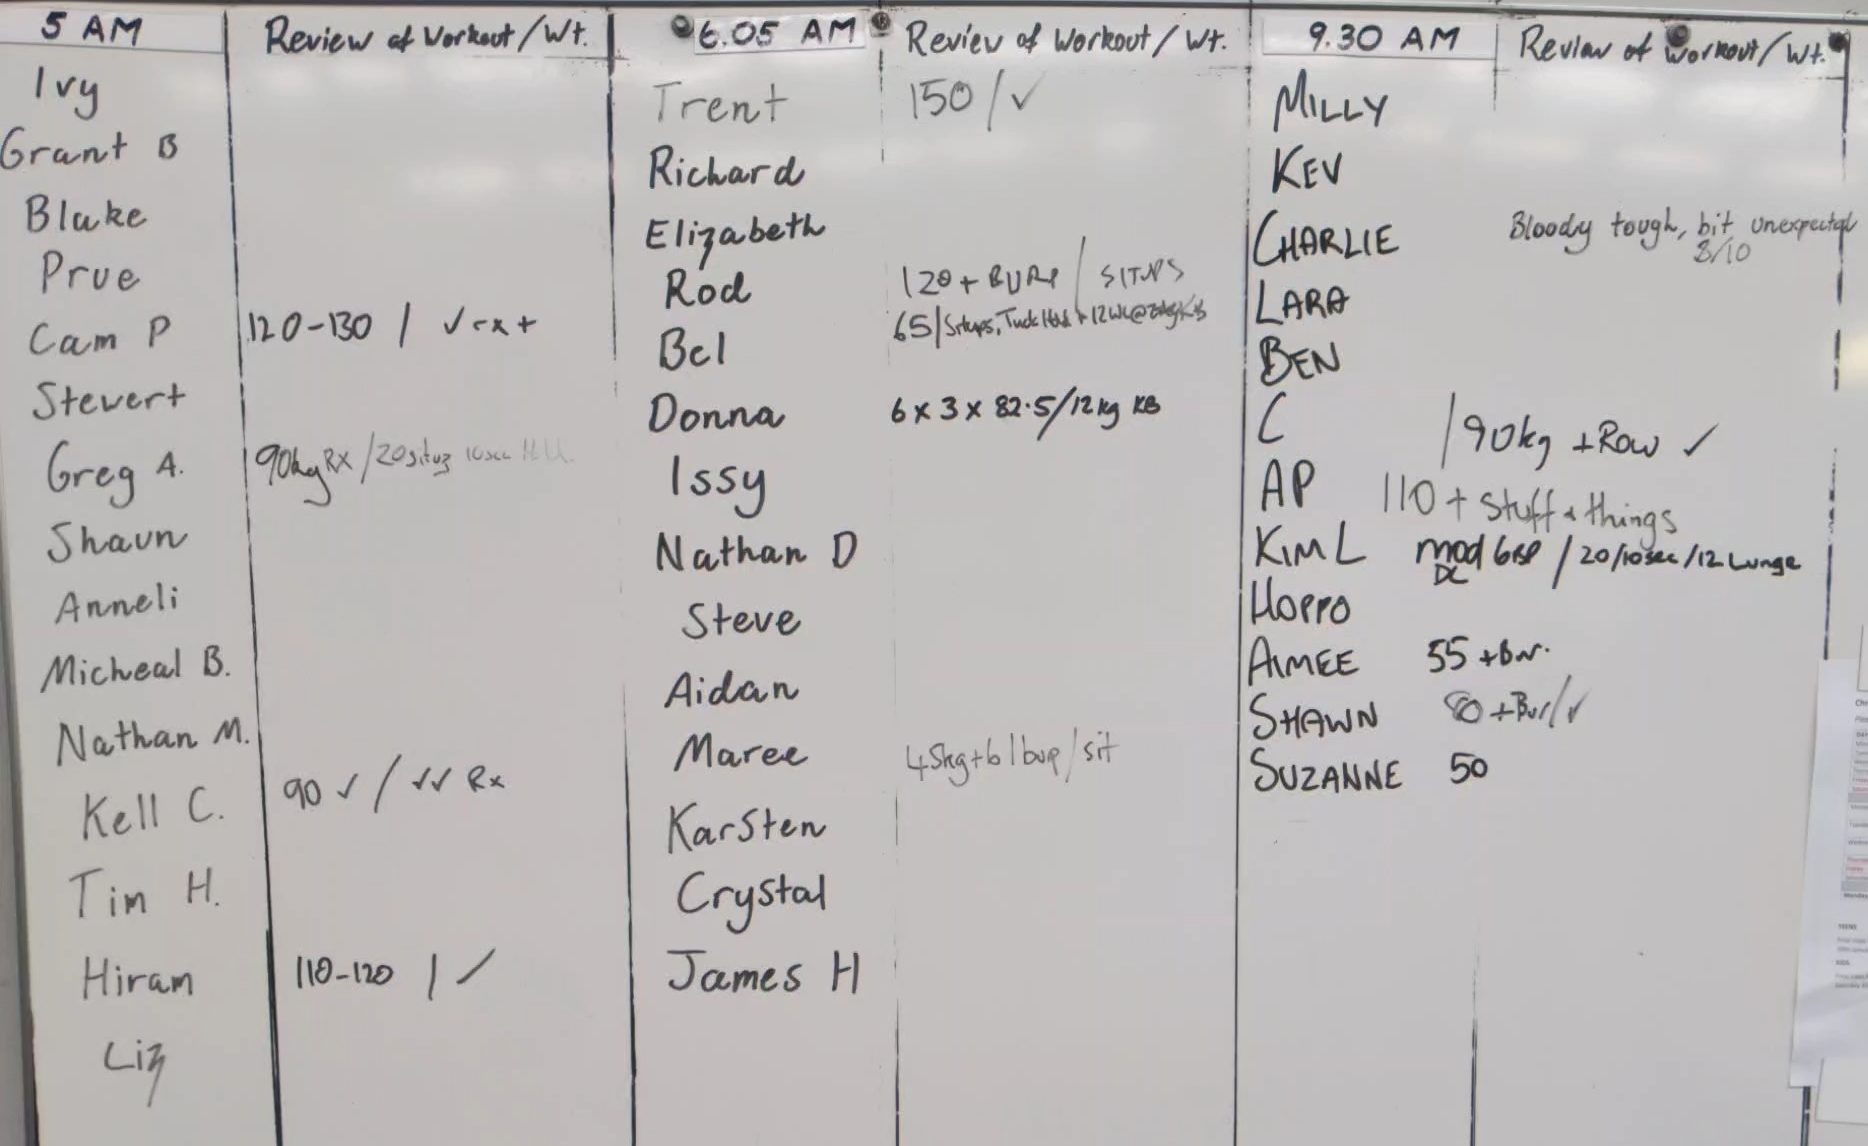 5 AM
Review of Workout/Wt.
Ivy
Grant B
Blake
Prue
Cam P 120-130 / ✓ rx +
Stewert
Greg A. 90kg RX /20 situp 10sec
Shaun
Anneli
Micheal B.
Nathan M.
Kell C. 90 ✓ / ✓✓ Rx
Tim H.
Hiram 110-120 | ✓
Liz
6.05 AM
Review of Workout/Wt.
Trent 150/✓
Richard
Elizabeth
Rod 120+BURP / SITUPS
Bel 65/Situps, Tuck Hold + 12
Donna 6 x 3 x 82.5/12kg KB
Issy
Nathan D
Steve
Aidan
Maree 45kg+6 / sit
Karsten
Crystal
James H
9.30 AM
Review of Workout/Wt.
MILLY
KEV
CHARLIE Bloody tough, bit unexpected
8/10
LARA
BEN
C /90kg +Row ✓
AP 110 + Stuff & things
KIM L mod / 20/10sec/12 Lunge
HOPPO
AIMEE 55 +Bur.
SHAWN 80 +Bur/✓
SUZANNE 50